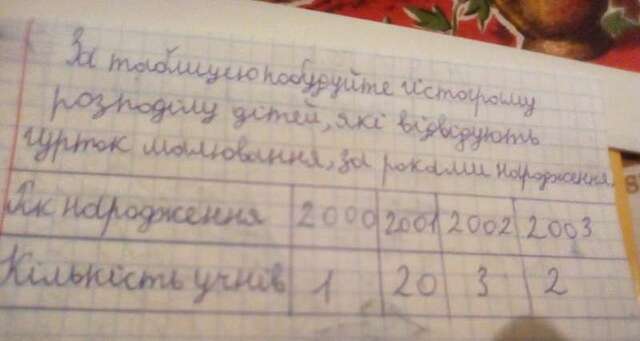 За таблицею побудуйте гістограму
розподілу дітей, які відвідують
гурток малювання, за роками народження.
Рік народження 2000 2001 2002 2003
Кількість учнів 1 20 3 2